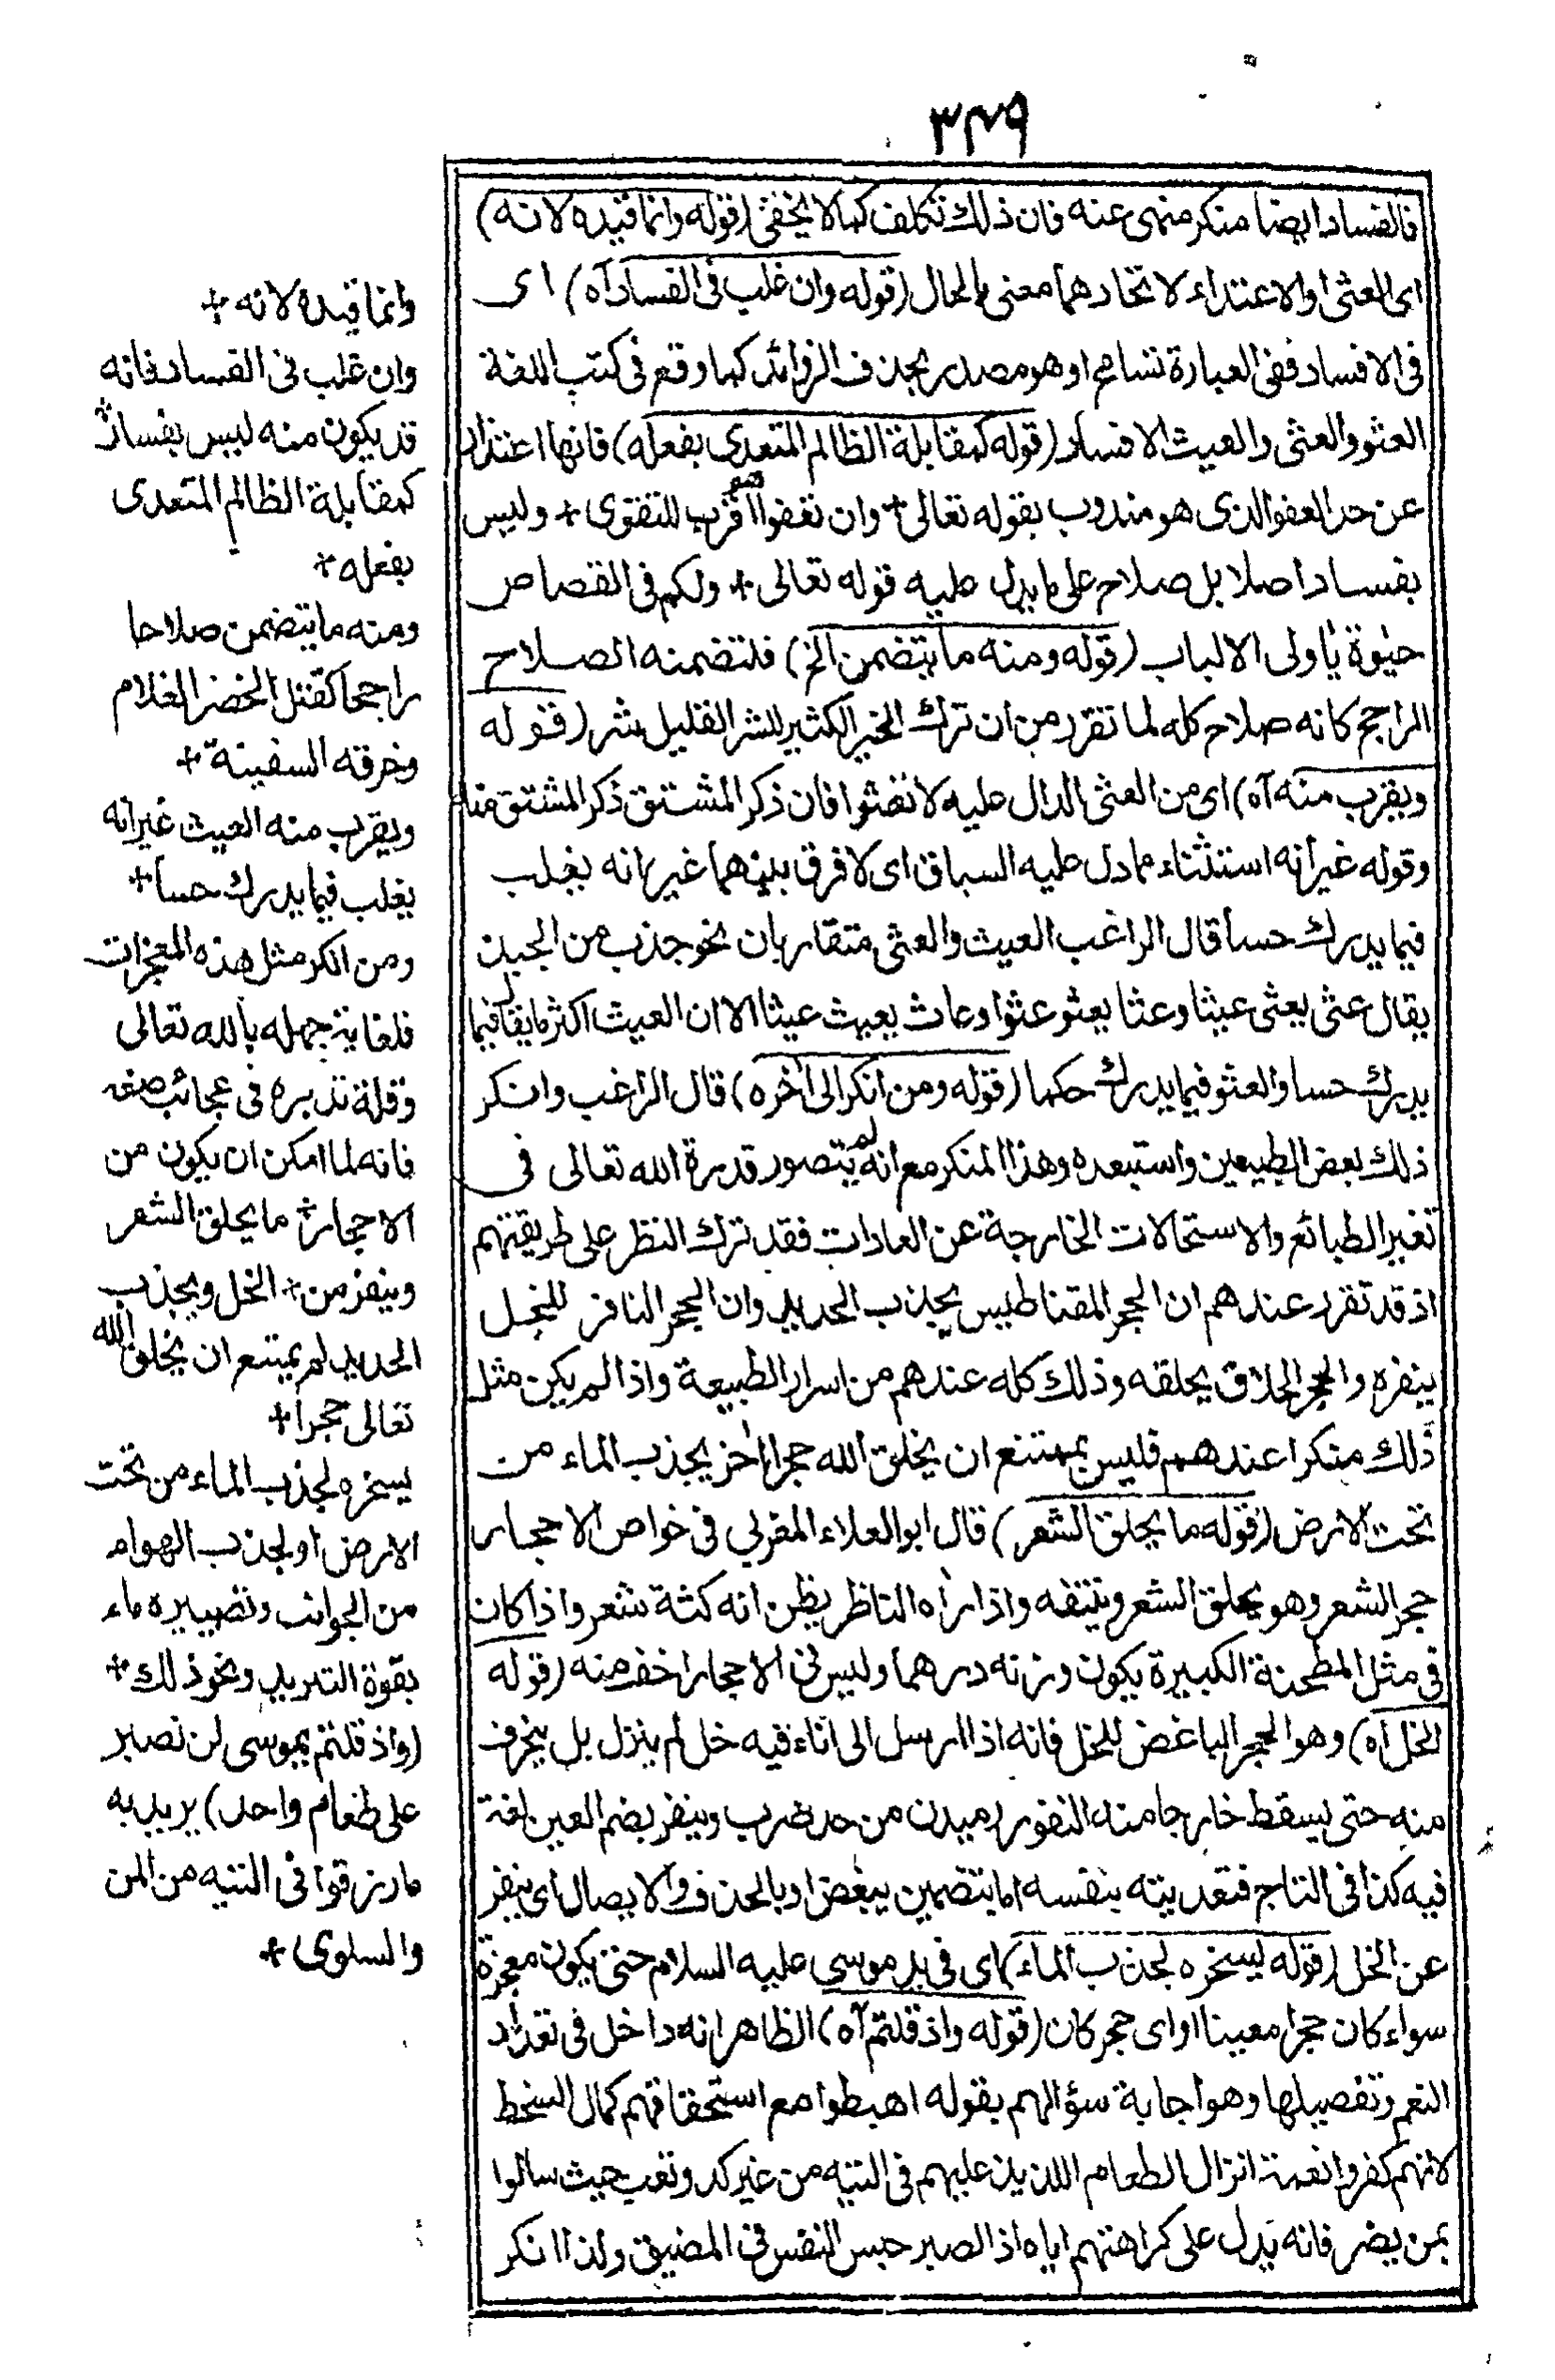 ٣٤٩
فالفساد ايضا منكر منهى عنه فان ذلك تكلف كما لا يخفى (قوله وانما قيده لانه)
اى العثى او الاعتداء لاتحادهما معنى مالحال (قوله وان غلب فى الفساد آه) اى
فى الافساد ففى العبارة تسامح او هو مصدر بحذف الزوائد كما وقع فى كتب اللغة
العثو والعثى والعيث الافساد (قوله كمقابلة الظالم المتعدى بفعله) فانها اعتداء
عن حد العفو الذى هو مندوب بقوله تعالى + وان تعفوا هو اقرب للتقوى + وليس
بفساد اصلا بل صلاح على ما يدل عليه قوله تعالى + ولكم فى القصاص
حيوة يا ولى الالباب (قوله ومنه ما يتضمن الخ) فلتضمنه الصلاح
الراجح كانه صلاح كله لما تقرر من ان ترك الخير الكثير للشر القليل شر (قوله
ويقرب منه آه) اى من العثى الدال عليه لا تعثوا فان ذكر المشتق ذكر المشتق منه
وقوله غير انه استثناء مما دل عليه السباق اى لا فرق بينهما غير انه يغلب
فيما يدرك حسا قال الراغب العيث والعثى متقاربان نحو جذب من الجبذ
يقال عثى يعثى عيثا وعثا يعثو عثوا وعاث يعيث عيثا الا ان العيث اكثر ما يقال فيما
يدرك حسا والعثو فيما يدرك حكما (قوله ومن انكر الى آخره) قال الراغب وانكر
ذلك بعض الطبيعين واستبعده وهذا المنكر مع انه لم يتصور قدرة الله تعالى فى
تغير الطبائع والاستحالات الخارجة عن العادات فقد ترك النظر على طريقتهم
اذ قد تقرر عندهم ان الحجر المقناطيس يجذب الحديد وان الحجر النافر للخل
ينفره والحجر الحلاق يحلقه وذلك كله عندهم من اسرار الطبيعة واذا لم يكن مثل
ذلك منكرا عندهم فليس بممتنع ان يخلق الله حجرا آخر يجذب الماء من
تحت الارض (قوله ما يحلق الشعر) قال ابو العلاء المغربي فى خواص الاحجار
حجر الشعر وهو يحلق الشعر وينتفه واذا راه الناظر يظن انه كثة شعر واذا كان
فى مثل المطحنة الكبيرة يكون وزنه درهما وليس فى الاحجار اخف منه (قوله
الخل آه) وهو الحجر الباغض للخل فانه اذا ارسل الى اناء فيه خل لم ينزل بل ينحرف
منه حتى يسقط خارجا منه النفور رميدن من حد ضرب وينفر بضم العين لغة
فيه كذا فى التاج فتعديته بنفسه اما بتضمين يبغض او بالحذف والايصال اى ينفر
عن الخل (قوله ليسخره لجذب الماء) اى فى يد موسى عليه السلام حتى يكون معجزة
سواء كان حجرا معينا او اى حجر كان (قوله واذ قلتم آه) الظاهر انه داخل فى تعداد
النعم وتفصيلها وهو اجابة سؤالهم بقوله اهبطوا مع استحقاقهم كمال السخط
لانهم كفروا نعمة انزال الطعام اللذيذ عليهم فى التيه من غير كد وتعب حيث سالوا
بمن يضر فانه يدل على كراهتهم اياه اذ الصبر حبس النفس فى المضيق ولذا انكر
وانما قيده لانه +
وان غلب فى الفساد فانه
قد يكون منه ليس بفساد
كمقابلة الظالم المتعدى
بفعله +
ومنه ما يتضمن صلاحا
راجحا كقتل الخضر الغلام
وخرقه السفينة +
ويقرب منه العيث غير انه
يغلب فيما يدرك حسا +
ومن انكر مثل هذه المعجزات
فلغاية جهله بالله تعالى
وقلة تدبره فى عجائب صنعه
فانه لما امكن ان يكون من
الاحجار ما يحلق الشعر
وينفر من + الخل ويجذب
الحديد لم يمتنع ان يخلق الله
تعالى حجرا +
يسخره لجذب الماء من تحت
الارض او لجذب الهواء
من الجوانب وتصييره ماء
بقوة التبريد ونحو ذلك +
(واذ قلتم يموسى لن نصبر
على طعام واحد) يريد به
ما رزقوا فى التيه من المن
والسلوى +